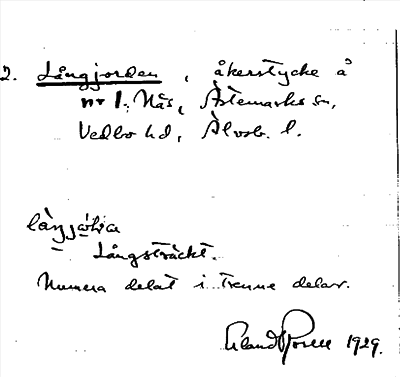 2. Långjorden, åkerstycke å
nr 1, Näs, Ärtemarks sn,
Vedbo hd, Älvsb. l.
Långsträckt.
Numera delat i trenne delar.
1929.